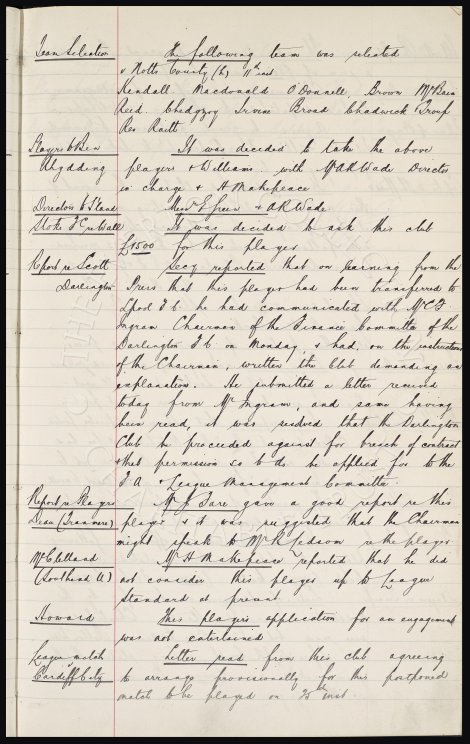 Team Selection The following team was selected
v Notts County (h) 11th inst
Kendall, Macdonald O'Donnell, Brown McBain
Reid. Chedgzoy Irvine Broad Chadwick & Troup
Res Raitt
Players to Rea It was decided to take the above
players & Williams with Mr A R Wade Director
in charge & H Makepeace
Directors to Stand Messrs E Green & A R Wade
Stoke F C re Wall It was decided to ask this club
£1500 for this player
Report re Scott Secy reported that on learning from the
Darlington Press that this player had been transferred to
Lpool F.C. he had communicated with Mr C F
Ingram Chairman of the Finance Committee of the
Darlington F.C. on Monday & had, on the instructions
of the Chairman, written the Club demanding an
explanation. He submitted a letter received
today from Mr Ingram, and same having
been read, it was resolved that the Darlington
Club be proceeded against for breach of contract
& that permission so to do be applied for to the
F A & League Management Committee.
Report re Players Mr J Sare gave a good report re this
Dean (Tranmere) player & it was suggested that the Chairman
might speak to Mr R Ledsom re the player
McClelland Mr H Makepeace reported that he did
(Southend U) not consider this player up to League
Standard at present
Howard This players application for an engagement
was not entertained
League match Letter read from this club agreeing
Cardiff City to arrange provisionally for this postponed
match to be played on inst.